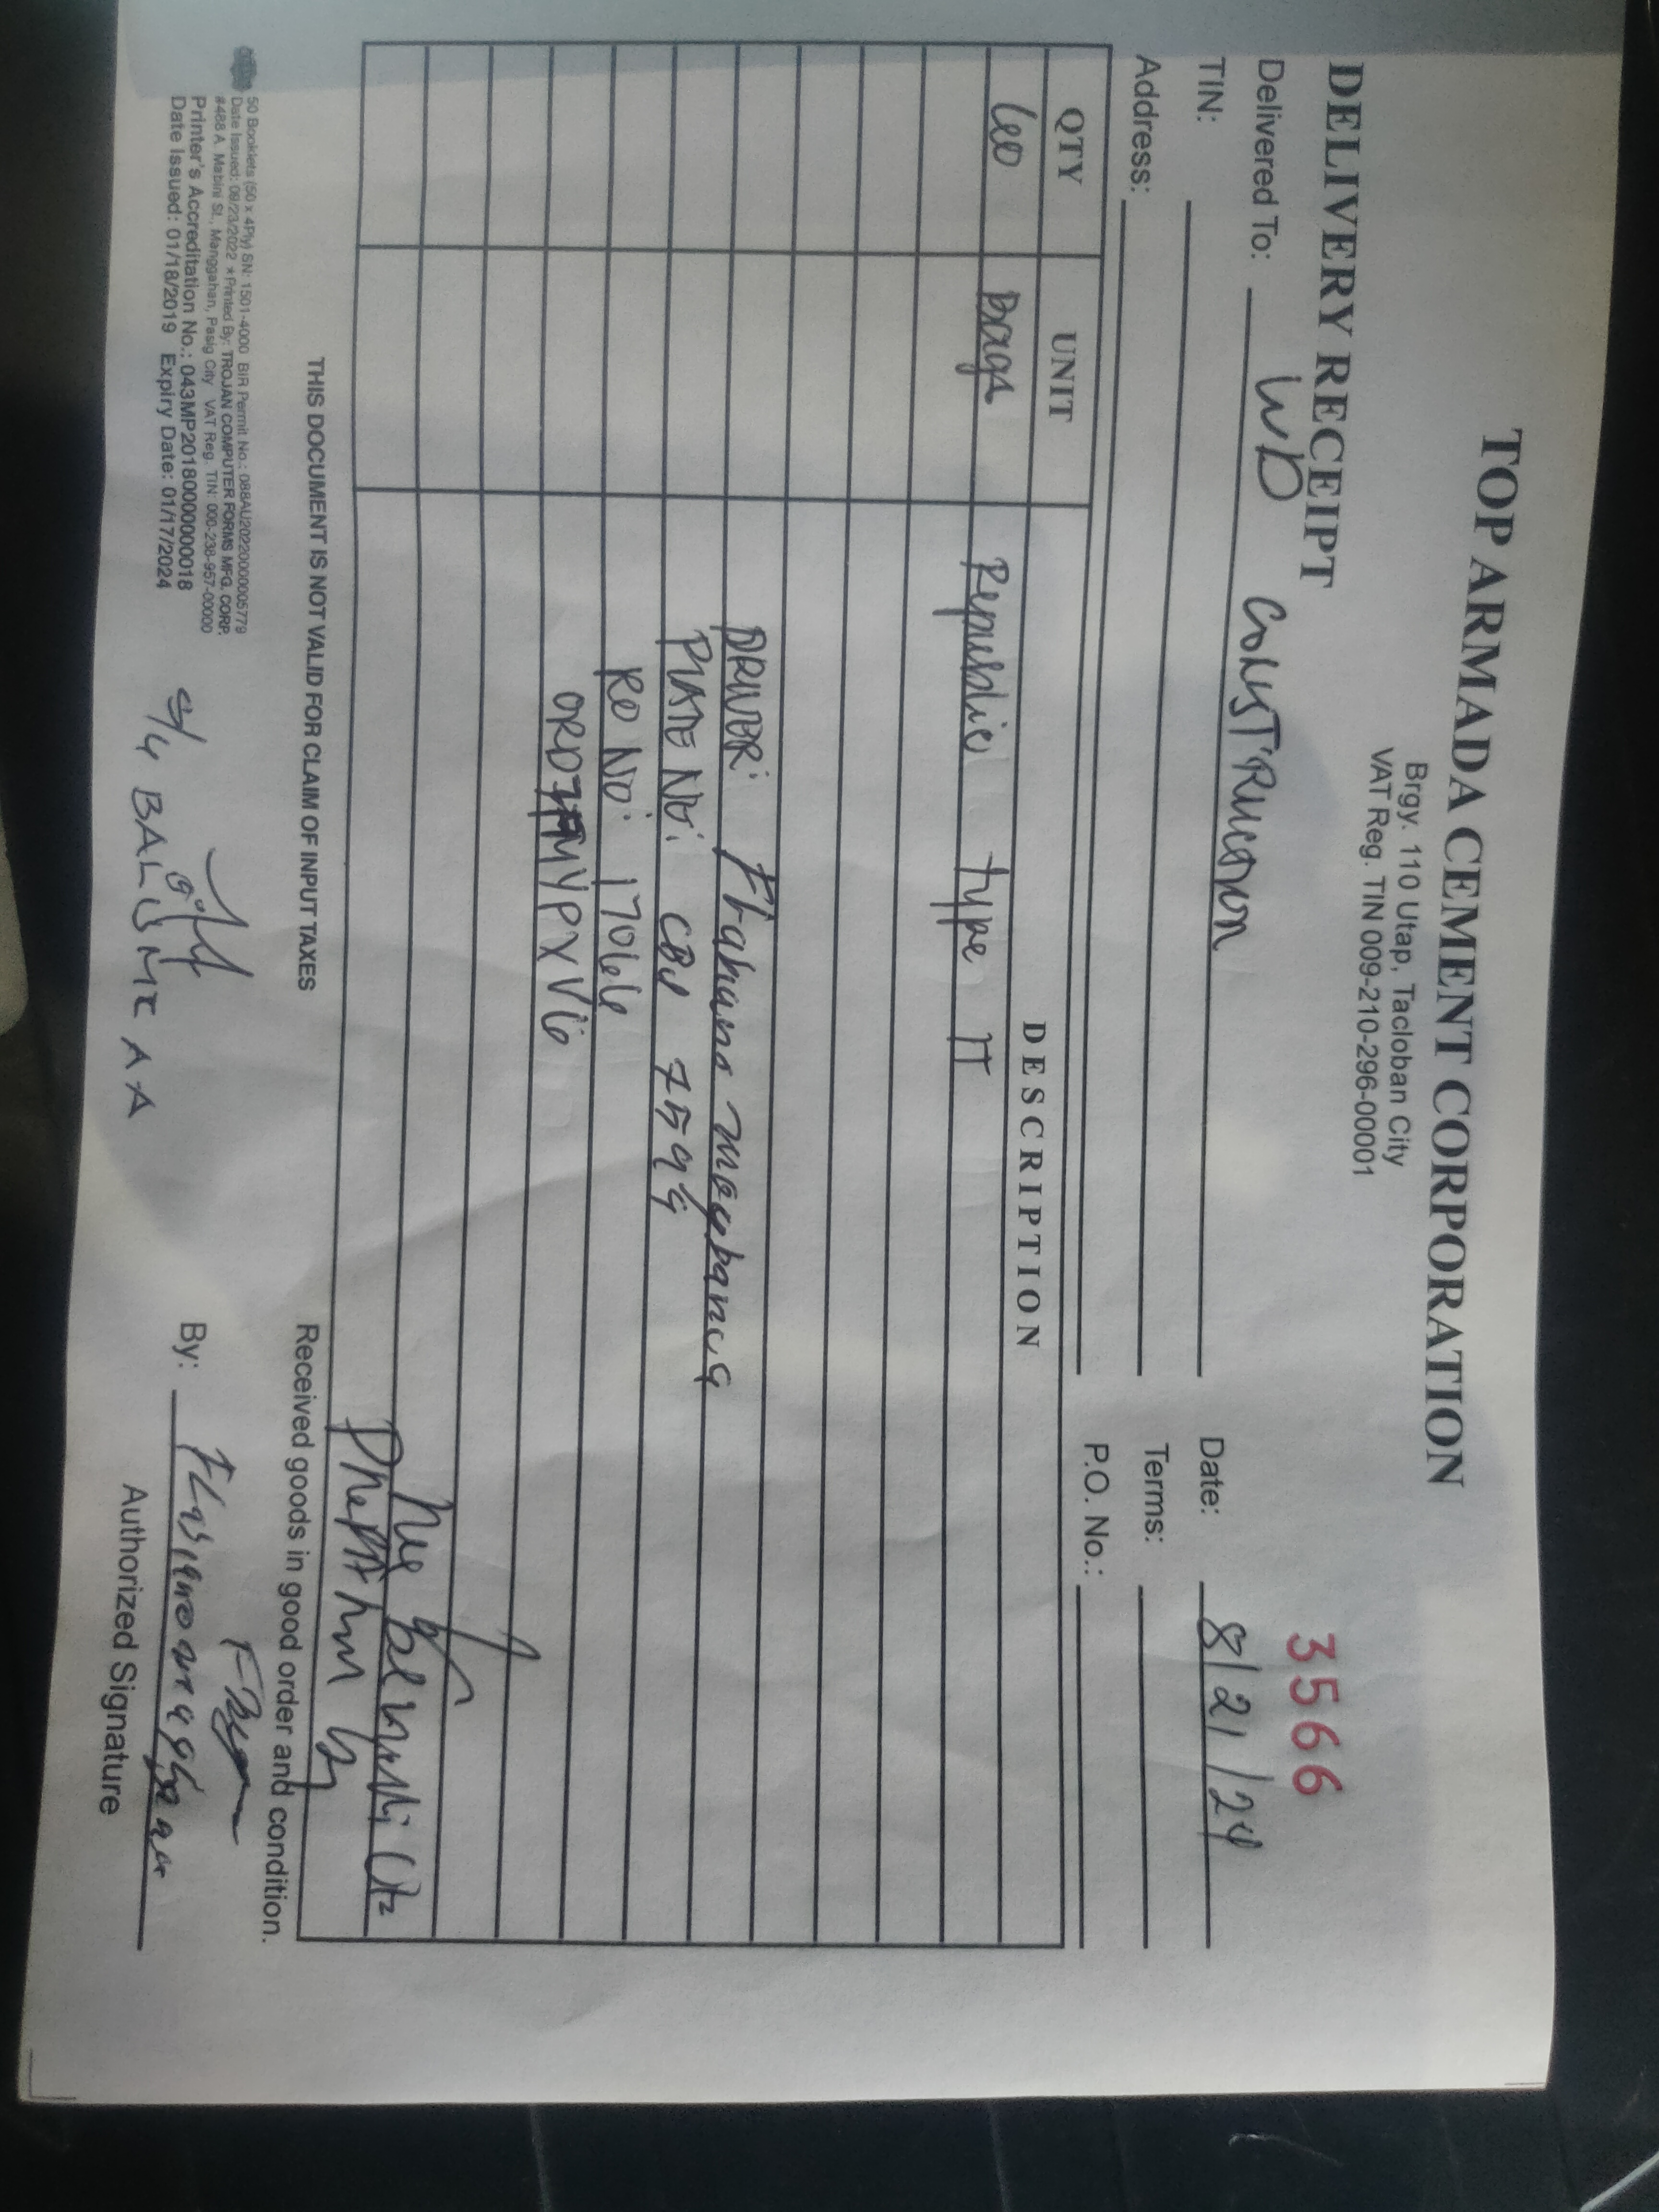 TOP ARMADA CEMENT CORPORATION
Brgy. 110 Utap, Tacloban City
VAT Reg. TIN 009-210-296-00001
DELIVERY RECEIPT
3566
Delivered To: WD CONSTRUCTION
Date: 8/21/24
TIN:
Terms:
Address:
P.O. No.:
QTY UNIT DESCRIPTION
600 Bags Republic type II
DRIVER:
PLATE NO: CBU 7599
RO NO: 17066
THIS DOCUMENT IS NOT VALID FOR CLAIM OF INPUT TAXES
Received goods in good order and condition.
50 Booklets (50 x 4Ply) SN: 1501-4000 BIR Permit No.: 088AU20220000005779
Date Issued: 09/23/2022 *Printed By: TROJAN COMPUTER FORMS MFG. CORP.
#468 A. Mabini St., Manggahan, Pasig City VAT Reg. TIN: 000-238-957-00000
Printer's Accreditation No.: 043MP20180000000018
Date Issued: 01/18/2019 Expiry Date: 01/17/2024
By:
Authorized Signature